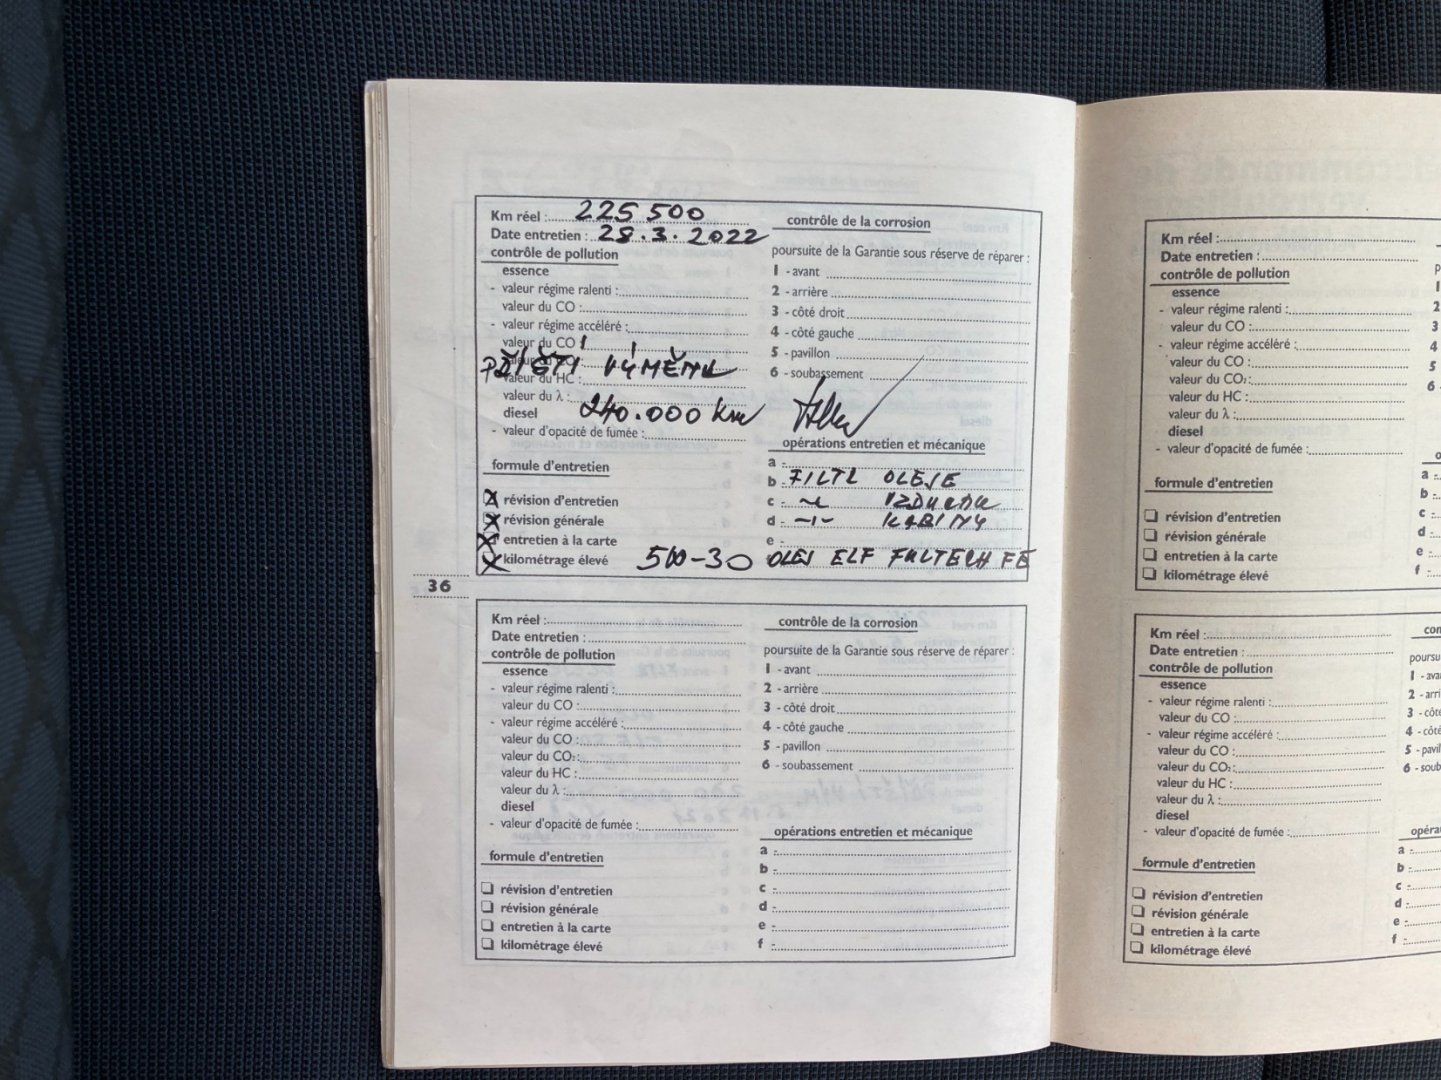 Km réel : 225 500
Date entretien : 28.3.2022
contrôle de pollution
essence
- valeur régime ralenti :
valeur du CO :
- valeur régime accéléré :
valeur du CO :
PŘÍŠTÍ VÝMĚNA
valeur du HC :
valeur du λ :
diesel 240.000 km
- valeur d'opacité de fumée :
formule d'entretien
révision d'entretien
révision générale
entretien à la carte
kilométrage élevé
contrôle de la corrosion
poursuite de la Garantie sous réserve de réparer :
1 - avant
2 - arrière
3 - côté droit
4 - côté gauche
5 - pavillon
6 - soubassement
opérations entretien et mécanique
a -
b - FILTR OLEJE
c - VZDUCHU
d -〃- KABINY
e -
5W-30 OLEJ ELF FULTECH FE
36
Km réel :
Date entretien :
contrôle de pollution
essence
- valeur régime ralenti :
valeur du CO :
- valeur régime accéléré :
valeur du CO :
valeur du CO₂ :
valeur du HC :
valeur du λ :
diesel
- valeur d'opacité de fumée :
formule d'entretien
révision d'entretien
révision générale
entretien à la carte
kilométrage élevé
contrôle de la corrosion
poursuite de la Garantie sous réserve de réparer :
1 - avant
2 - arrière
3 - côté droit
4 - côté gauche
5 - pavillon
6 - soubassement
opérations entretien et mécanique
a -
b -
c -
d -
e -
f -
Km réel :
Date entretien :
contrôle de pollution
essence
- valeur régime ralenti :
valeur du CO :
- valeur régime accéléré :
valeur du CO :
valeur du CO₂ :
valeur du HC :
valeur du λ :
diesel
- valeur d'opacité de fumée :
formule d'entretien
révision d'entretien
révision générale
entretien à la carte
kilométrage élevé
1
2
3
4
5
6 -
a -
b -
c -
d -
e -
f -
Km réel :
Date entretien :
contrôle de pollution
essence
- valeur régime ralenti :
valeur du CO :
- valeur régime accéléré :
valeur du CO :
valeur du CO₂ :
valeur du HC :
valeur du λ :
diesel
- valeur d'opacité de fumée :
formule d'entretien
révision d'entretien
révision générale
entretien à la carte
kilométrage élevé
con
poursu
1 - ava
2 - arri
3 - côté
4 - côté
5 - pavil
6 - soub
opéra
a -
b -
c -
d -
e -
f -